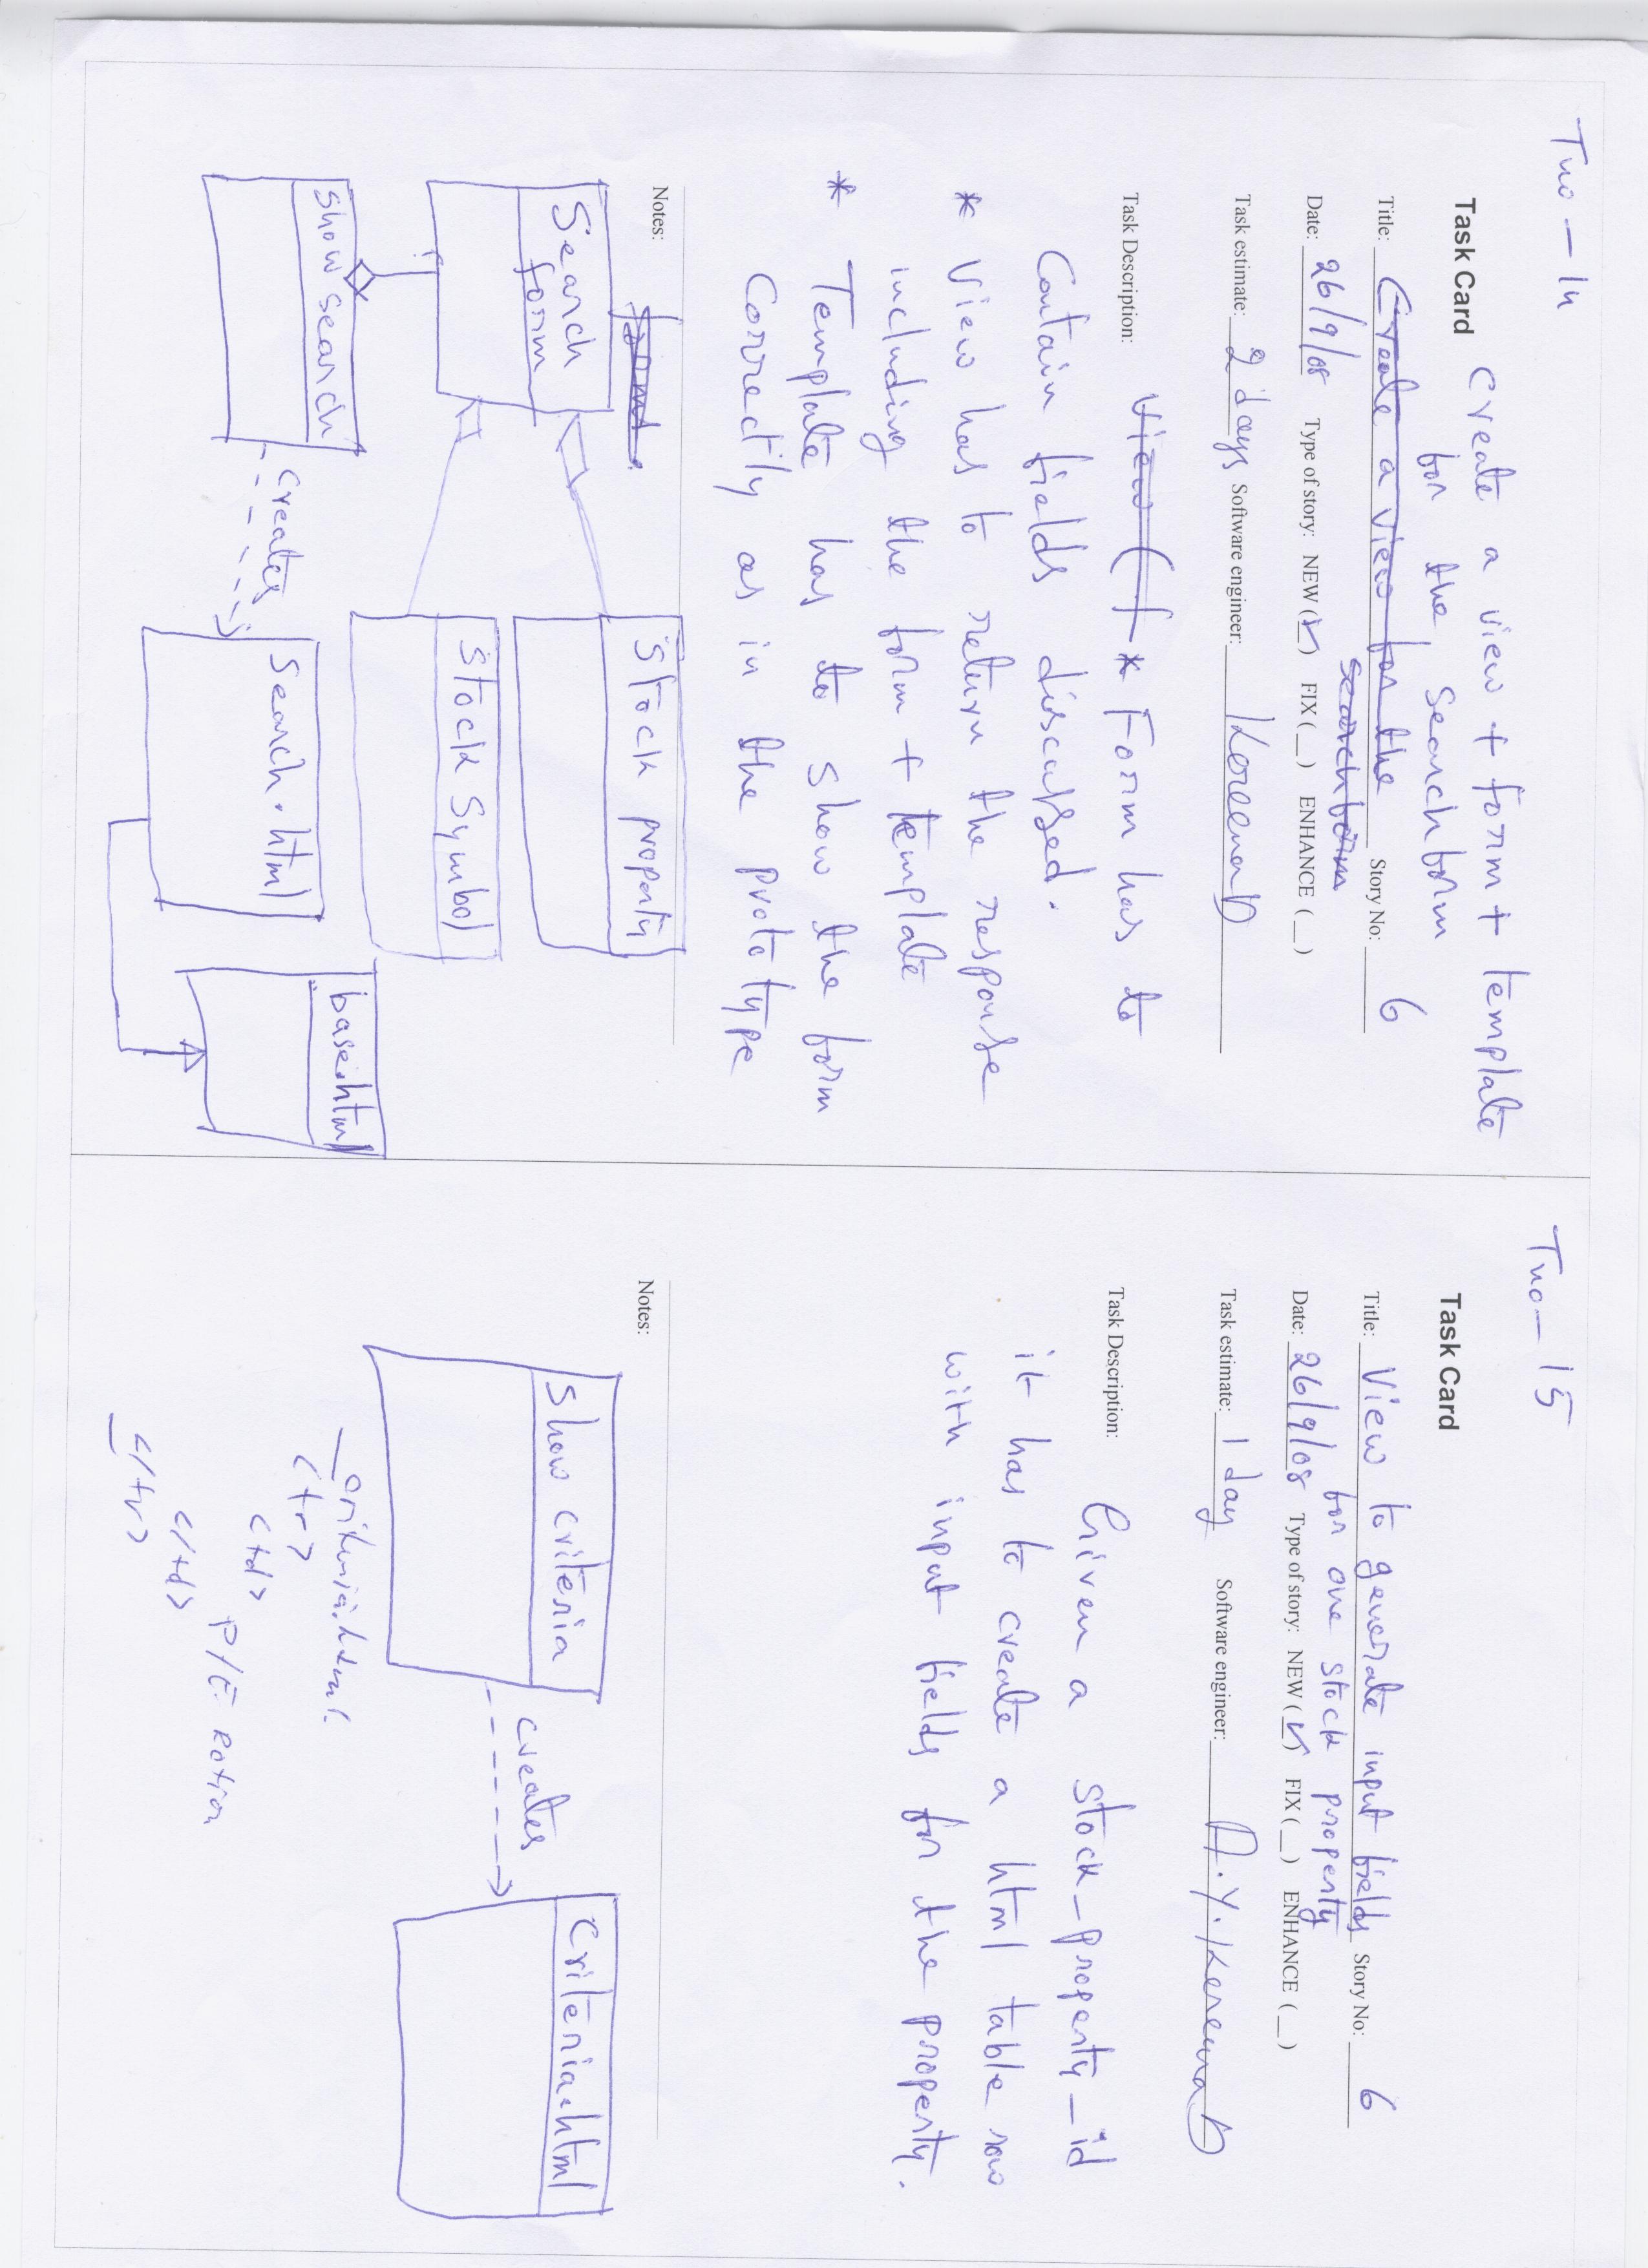 Tno - 14
Task Card
Create a view + form + template
for the search form
Title: Create a view for the
search form
Story No: 6
Date: 26/9/08 Type of story: NEW (✓) FIX (_) ENHANCE (_)
Task estimate: 2 days Software engineer:
Task Description: View ( * Form has to
Contain fields discussed.
* View has to return the response
including the form + template
* Template has to show the form
Correctly as in the prototype
Notes:
form.
Search
form
Stock property
Stock Symbol
Show search
creates
Search.html
base.html
Tno - 15
Task Card
Title: View to generate input fields Story No: 6
for one stock property
Date: 26/9/08 Type of story: NEW (✓) FIX (_) ENHANCE (_)
Task estimate: 1 day Software engineer:
Task Description:
Given a stock_property_id
it has to create a html table row
with input fields for the property.
Notes:
Show criteria
creates
Criteria.html
criteria.html
<tr>
<td>
P/E Ratio
</td>
</tr>